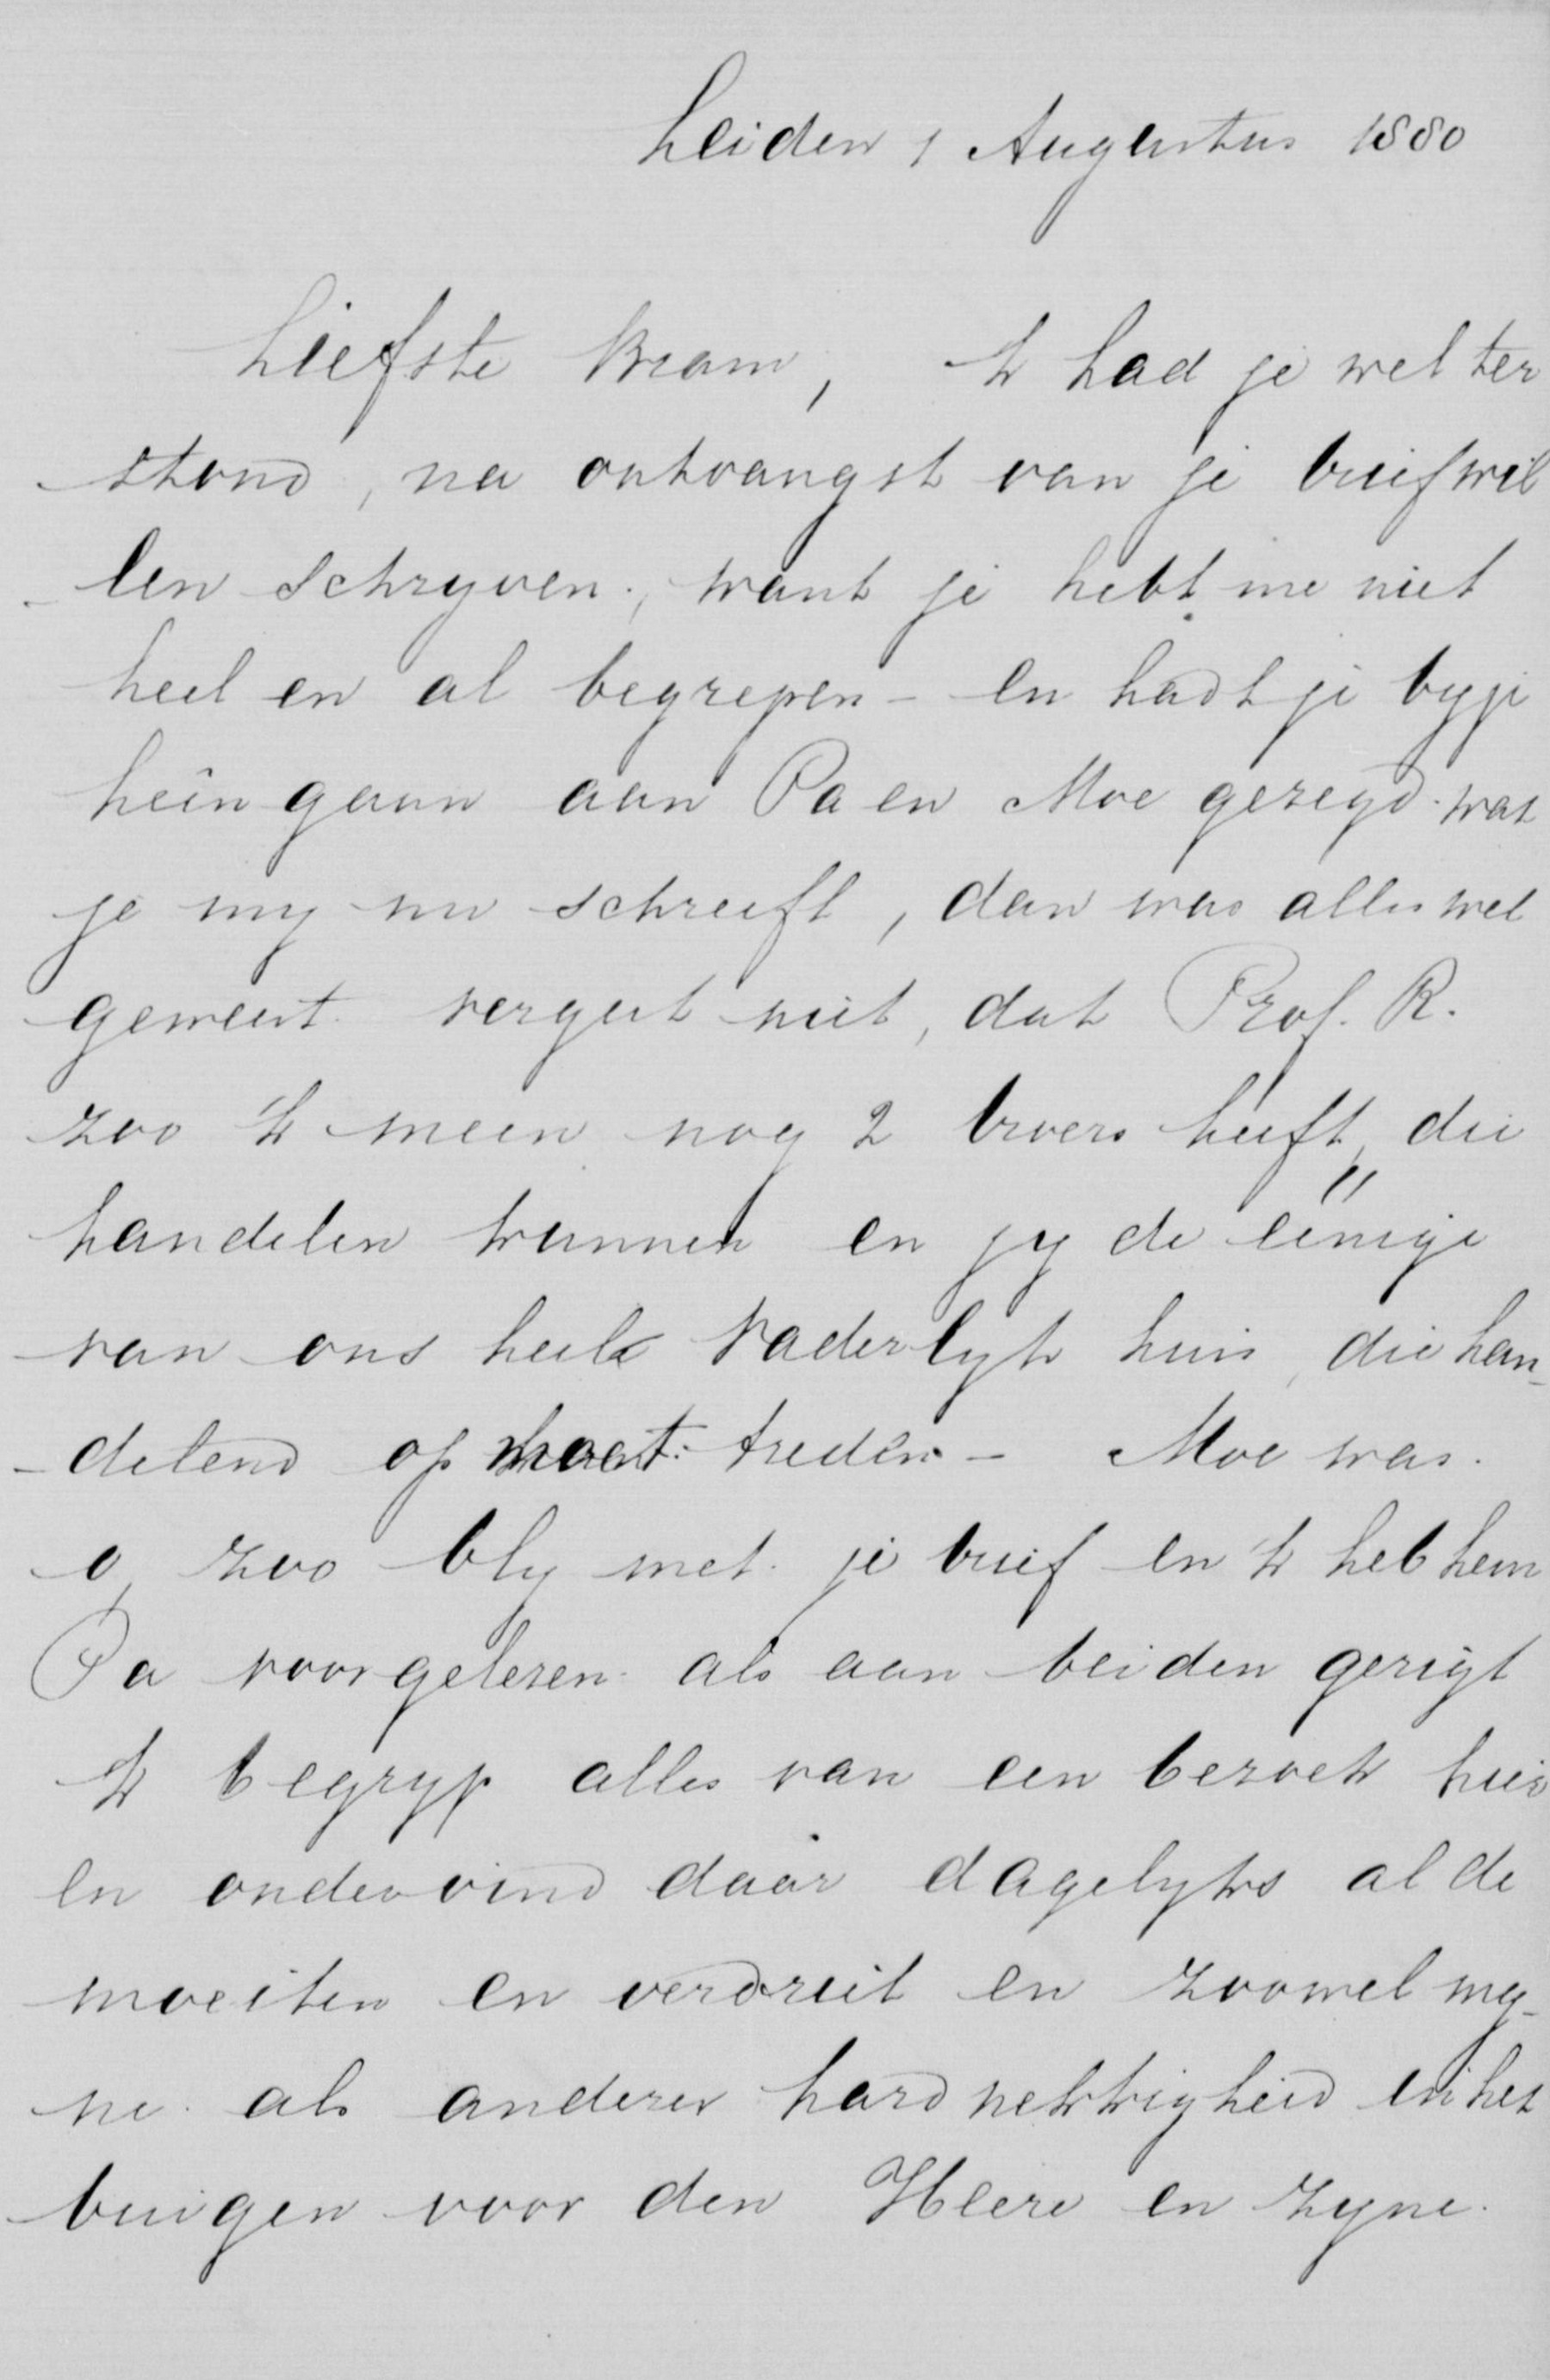 Leiden 1 Augustus 1880
Liefste Bram, Ik had je wel ter
stond, na ontvangst van je brief wil
len schryven, want je hebt me niet
heel en al begrepen - en hadt je by je
heengaan aan Pa en Moe gezegd wat
je my nu schreeft, dan was alles wel
geweest. vergeet niet, dat Prof. R.
zoo 'k meen nog 2 broers heeft, die
handelen kunnen en jy de eenige
van ons heele vaderlyk huis, die han-
-delend op moet treden - Moe was
o, zoo bly met je brief en 'k heb hem
Pa voorgelezen als aan beiden gerigt
Ik begryp alles van een bezoek hier
en ondervind daar dagelyks al de
moeiten en verdriet en zoowel my-
ne als anderer hardnekkigheid in het
buigen voor den Heere en zyne